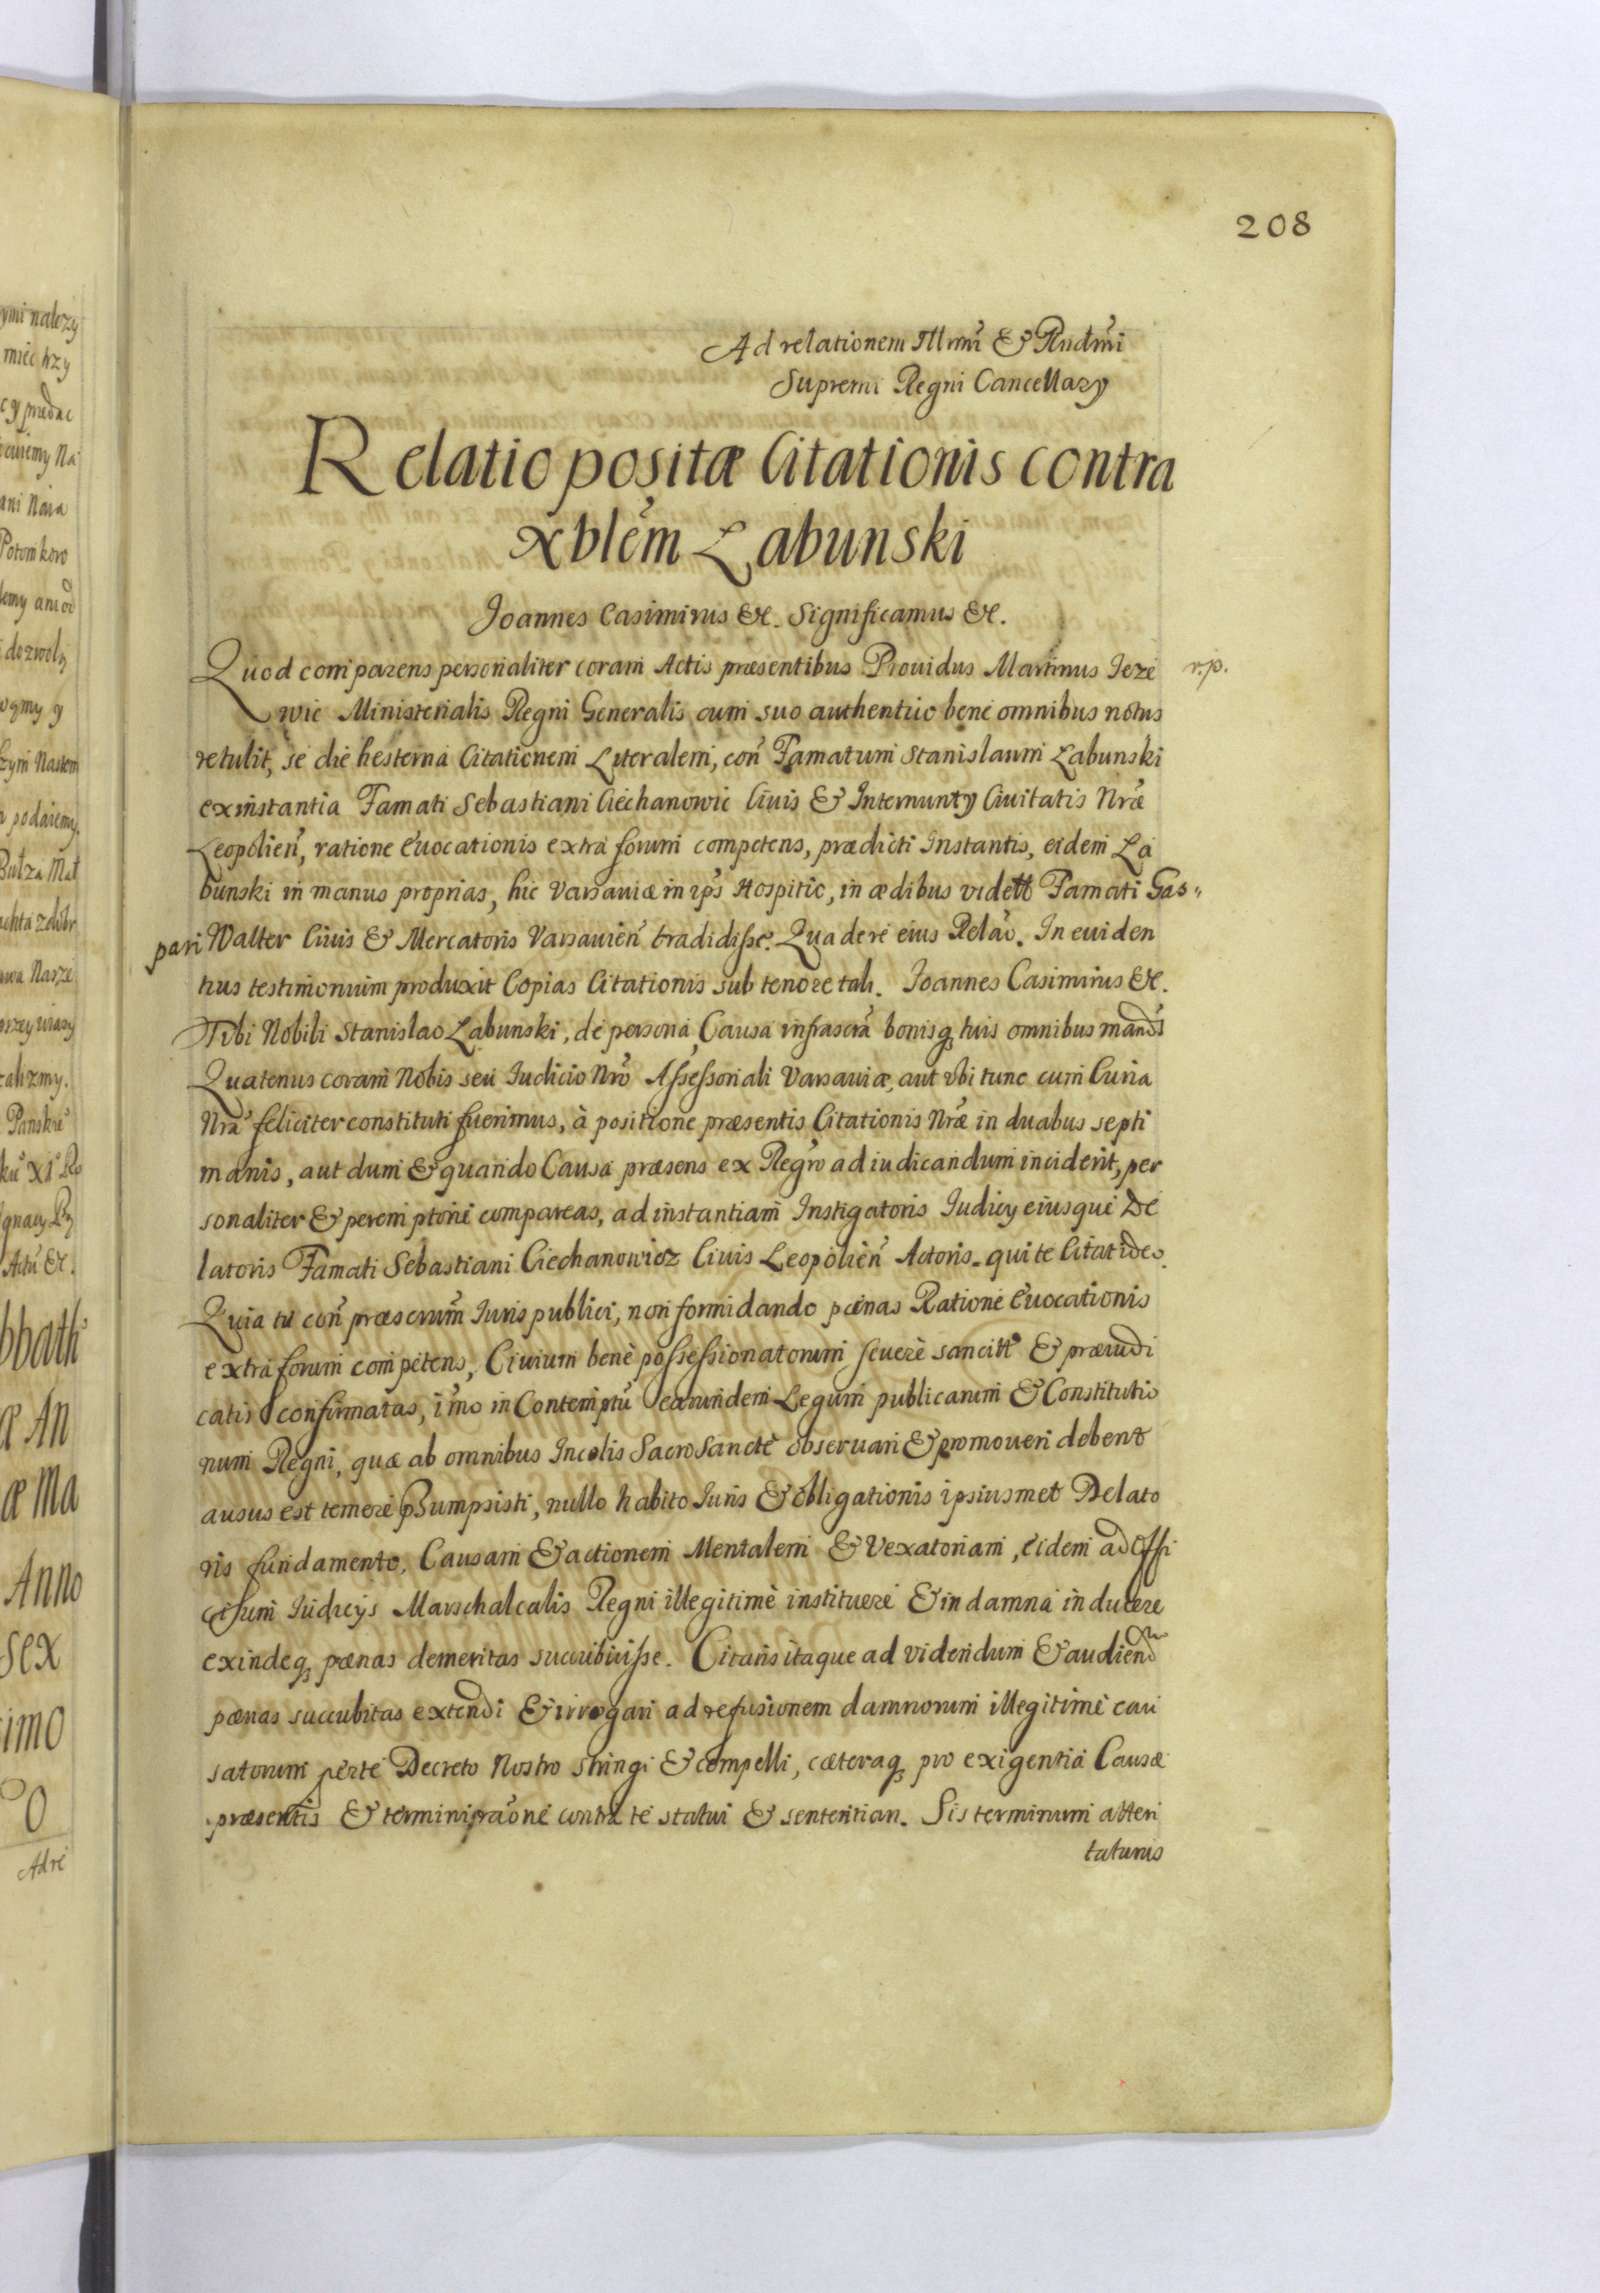 208
Ad relationem Illrmi & Rndmi
Supremi Regni Cancellary
Relatio positæ Citationis contra
Nblem Łabunski
Joannes Casimirus &c. Significamus &c.
Quod comparens personaliter coram Actis præsentibus Prouidus Martinus Jeze r.p.
wic Ministerialis Regni Generalis, cum suo authentico bene omnibus notus
retulit, se die hesterna Citationem Literalem, con Famatum Stanislaum Łabunski
ex instantia Famati Sebastiani Ciechanowic Ciuis & Internunty Ciuitatis Nræ
Leopolien, ratione Euocationis extra forum competens, prædicti Instantis, eidem Ła
bunski in manus proprias, hic Varsauiæ in ips Hospitio, in ædibus vidett Famati Gas
pari Walter Ciuis & Mercatoris Varsauien tradidisse. Qua de re eius Relao. In euiden
tius testimonium produxit Copias Citationis sub tenore tali. Joannes Casimirus &c.
Tibi Nobili Stanislao Łabunski, de persona, Causa infrascra bonisq tuis omnibus mands
Quatenus coram Nobis seu Iudicio Nro Assessoriali Varsauiæ, aut vbi tunc cum Curia
Nra feliciter constituti fuerimus, à positione præsentis Citationis Nræ in duabus septi
manis, aut dum & quando Causa præsens ex Regro ad iudicandum inciderit, per
sonaliter & peremptorie compareas, ad instantiam Instigatoris Iudicy eiusque De
latoris Famati Sebastiani Ciechanowicz Ciuis Leopolien Actoris. qui te Citat ideo.
Quia tu con præscrum Iuris publici, non formidando pœnas Ratione Euocationis
extra forum competens, Ciuium benè possessionatorum seuerè sancitt & præiudi
catis confirmatas, imo in Contemptu earundem Legum publicarum & Constitutio
num Regni, quæ ab omnibus Incolis Sacrosanctè obseruari & promoueri debent
ausus est temere psumpsisti, nullo habito Iuris & obligationis ipsiusmet Delato
ris fundamento, Causam & actionem Mentalem & Vexatoriam, eidem ad Offi
cium Iudicys Marschalcalis Regni illegitimè instituere & in damna inducere
exindeq pœnas demeritas succubuisse. Citaris itaque ad videndum & audiend
pœnas succubitas extendi & irrogari ad refusionem damnorum illegitimè cau
satorum per te Decreto Nostro stringi & compelli, cæteraq pro exigentia Causæ
præsentis & termini praone contra te statui & sententian. Sis terminum atten
taturus